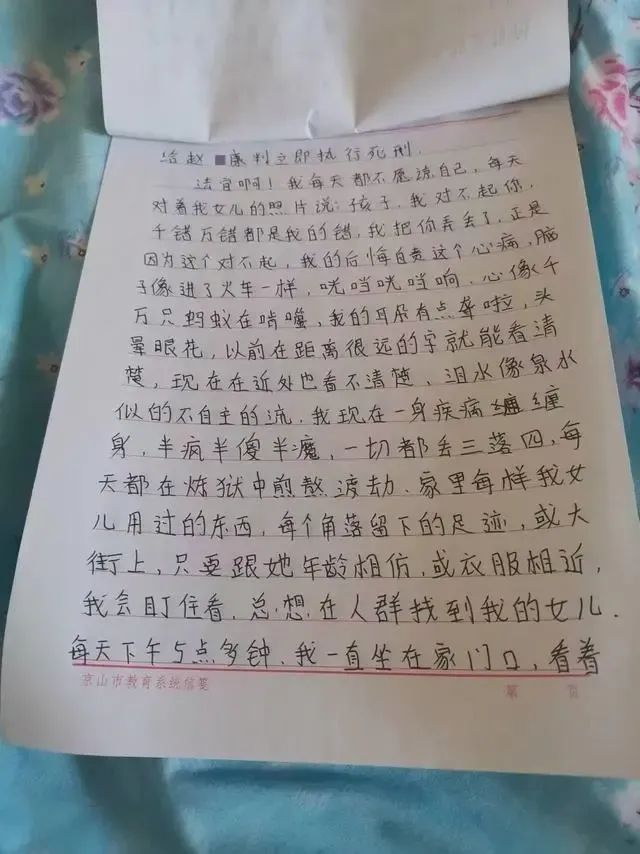 给赵■廉判立即执行死刑.
法官啊！我每天都不愿谅自己，每天
对着我女儿的照片说：孩子，我对不起你，
千错万错都是我的错，我把你弄丢了，正是
因为这个对不起，我的后悔自责这个心痛，脑
子像进了火车一样，咣当咣当响.心像千
万只蚂蚁在啃噬、我的耳朵有点聋啦，头
晕眼花，以前在距离很远的字就能看清
楚，现在在近处也看不清楚、泪水像泉水
似的不自主的流.我现在一身疾病缠缠
身，半疯半傻半魔，一切都丢三落四，每
天都在炼狱中煎熬渡劫.家里每样我女
儿用过的东西，每个角落留下的足迹，或大
街上，只要跟她年龄相仿，或衣服相近，
我会盯住看，总.想.在人群找到我的女儿.
每天下午5点多钟、我一直坐在家门口，看着
京山市教育系统信笺
第 页